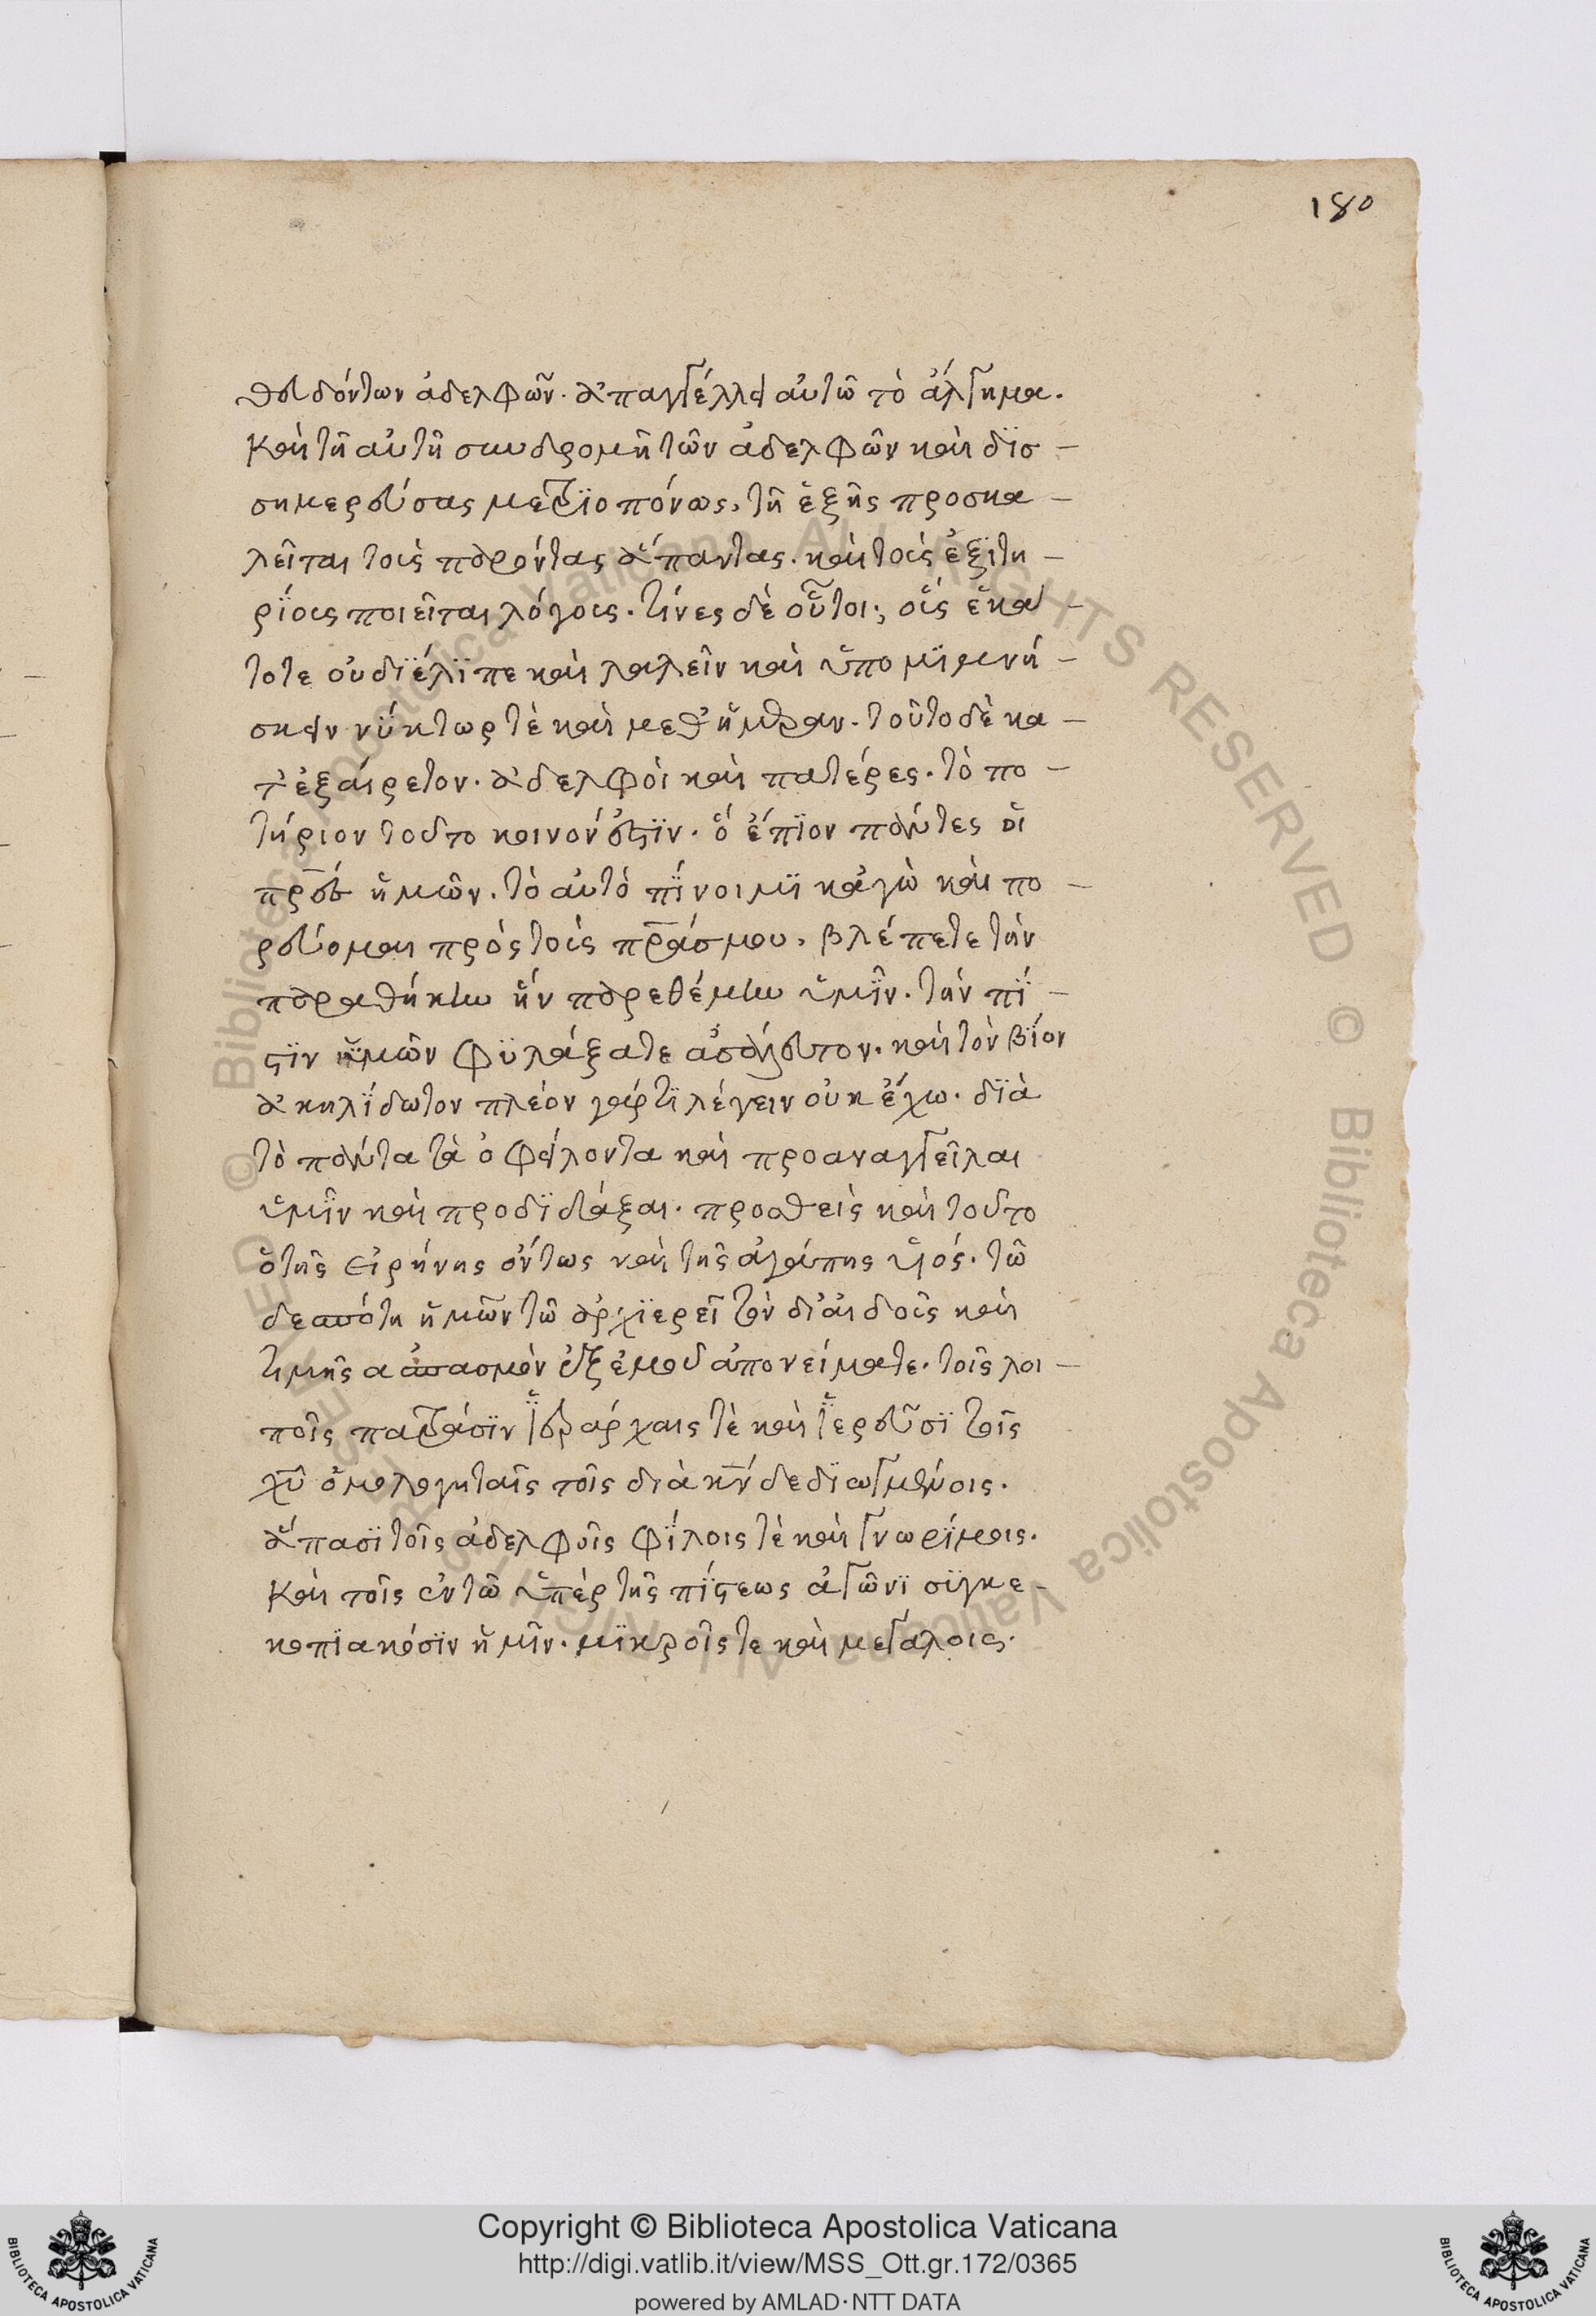 180
θευδόντων ἀδελφῶν. ἀπαγγέλλει αὐτῶ τὸ ἄλγημα.
Καὶ τῆ αὐτῆ συνδρομῆ τῶν ἀδελφῶν καὶ δϊσ –
σημερεύσας μετρϊοπόνως, τῆ ἑξῆς προσκα –
λεῖται τοὺς παρόντας ἅπαντας. καὶ τοὺς ἐξιτη –
ρΐους ποιεῖται λόγους. τίνες δὲ οὗτοι; οὓς ἑκασ –
τοτε οὐ διέλϊπε καὶ λαλεῖν καὶ ὑπομϊμνή –
σκειν νύκτωρ τὲ καὶ μεθ' ἡμέραν. τοῦτο δὲ κα –
τ' ἐξαίρετον. ἀδελφοὶ καὶ πατέρες. τὸ πο –
τήριον τοῦτο κοινόν ἐστϊν. ὅ ἔπϊον πάντες οἱ
πρ̅ες ἡμῶν. τὸ αὐτό πΐνοιμϊ κἀγὼ καὶ πο –
ρεύομαι πρὸς τοὺς πρ̅ας μου. βλέπετε τὴν
παραθήκην ἥν παρεθέμην ὑμῖν. τὴν πΐ –
στϊν ἡμῶν φϋλάξατε ἀσάλευτον. καὶ τὸν βΐον
ἀκηλΐδωτον πλέον γάρ τϊ λέγειν οὐκ ἔχω. δϊὰ
τὸ πάντα τὰ ὀφείλοντα καὶ προαναγγεῖλαι
ὑμῖν καὶ προδϊδάξαι. προσθεὶς καὶ τοῦτο
ὁ τῆς εἰρήνης ὄντως καὶ τῆς ἀγάπης ὑιός. τῶ
δεσπότη ἡμῶν τῶ ἀρχϊερεῖ τὸν δι' αἰδοῦς καὶ
τιμῆς ἀσπασμὸν ἐξ ἐμοῦ ἀπονείματε. τοῖς λοι –
ποῖς πατράσϊν ἱεράρχαις τὲ καὶ ἱερεῦσϊ τοῖς
χῦ ὁμολογηταῖς τοῖς διὰ κ̅ν δεδϊωγμένοις.
ἅπασϊ τοῖς ἀδελφοῖς φΐλοις τὲ καὶ γνωρΐμοις.
Καὶ τοῖς ἐν τῶ ὑπὲρ τῆς πΐστεως ἀγῶνϊ σϋγκε –
κοπϊακόσϊν ἡμῖν. μϊκροῖς τε καὶ μεγάλοις.
Copyright © Biblioteca Apostolica Vaticana
http://digi.vatlib.it/view/MSS_Ott.gr.172/0365
powered by AMLAD·NTT DATA